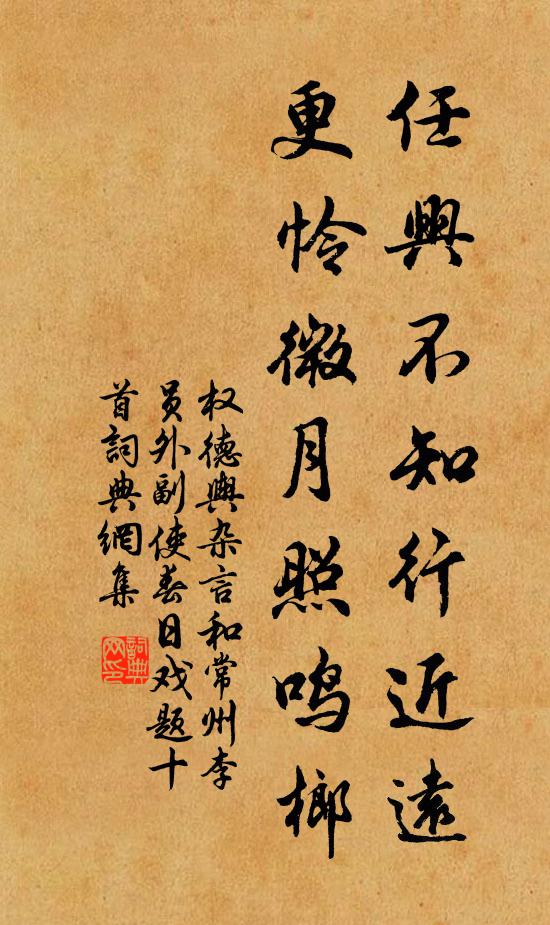 任興不知行近遠
更怜微月照鸣榔
权德舆杂言和常州李
员外副使春日戏题十
首詞典網集
詞典
网印